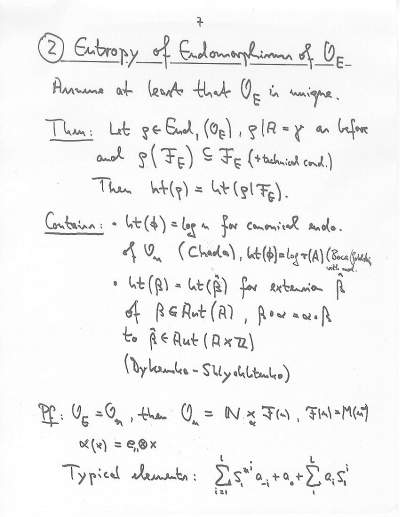 7
② Entropy of Endomorphisms of O_E
Assume at least that O_E is unique.
Thm: Let ρ ∈ End_1(O_E), ρ|A = γ as before
and ρ(F_E) ⊆ F_E (+technical cond.)
Then ht(ρ) = ht(ρ|F_E).
Contains: • ht(ϕ) = log n for canonical endo.
of O_n (Choda), ht(ϕ) = log r(A) (Boca/
• ht(β) = ht(β̂) for extension β̂
of β ∈ Aut(A), β∘α = α∘β
to β̂ ∈ Aut(A⋊Z)
(Dykema - Shlyakhtenko)
Pf: O_E = O_n, then O_n = N ⋊_α F(n), F(n) = M(n^∞)
α(x) = e_{11}⊗x
Typical elements: Σ_{i=1}^{L} S_1^{*i} a_{-i} + a_0 + Σ_1^L a_i S_1^i